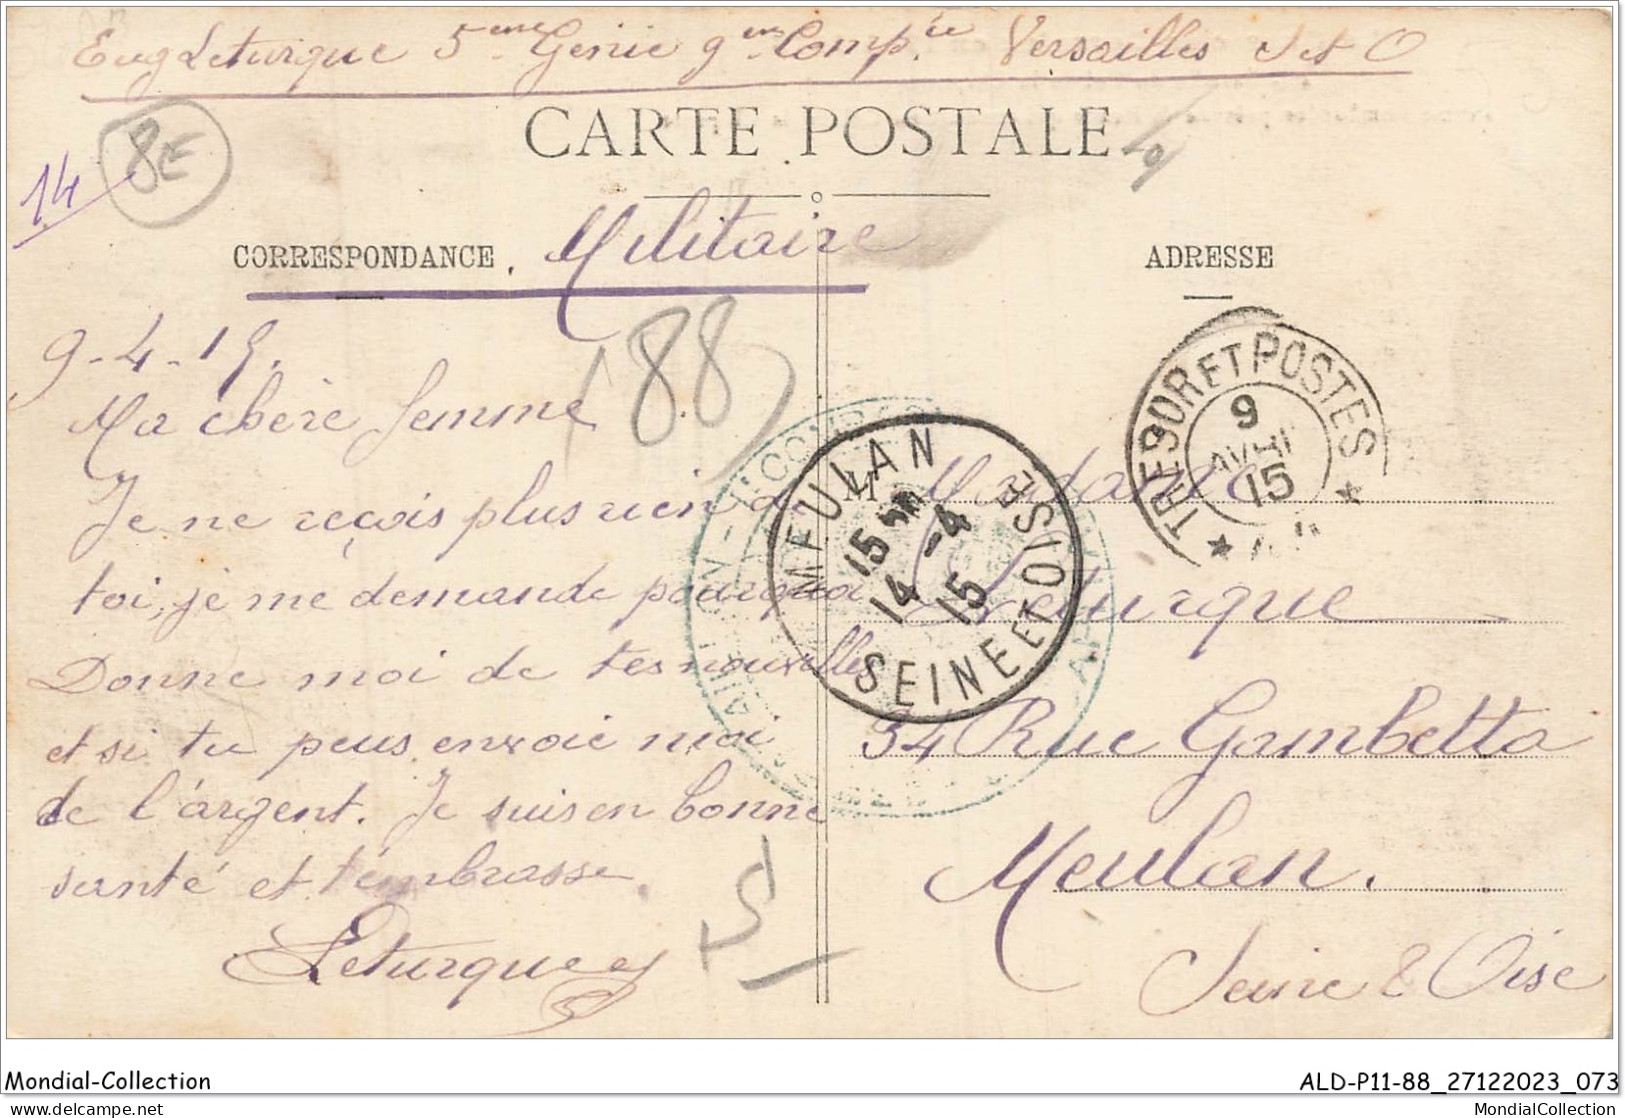 Eug Leturque 5eme Génie 9eme Compie Versailles S et O
CARTE POSTALE
14
8E
Militaire
CORRESPONDANCE
ADRESSE
9-4-15.
188
Ma chère femme
Je ne reçois plus rien de
toi, je me demande pourquoi
Donne moi de tes nouvelles
et si tu peus envoie moi
de l'argent. Je suis en bonne
santé et t'embrasse.
Leturque
TRESOR ET POSTES
9
AVRIL
15
MEULAN
15
14 -4
15
SEINE ET OISE
M Madame
Leturque
34 Rue Gambetta
Meulan.
Seine & Oise
Mondial-Collection
ALD-P11-88_27122023_073
www.delcampe.net
MondialCollection